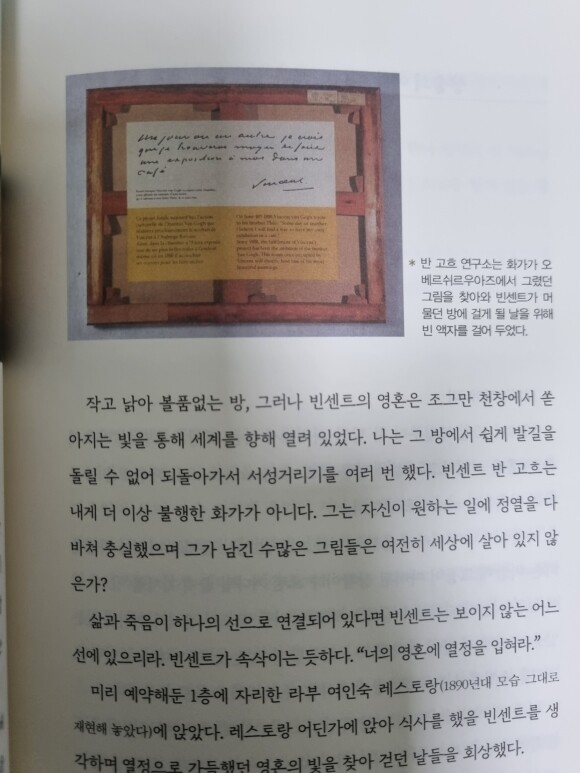 Un jour ou un autre je crois
que je trouverai moyen de faire
une exposition à moi dans un
café
Vincent
* 반 고흐 연구소는 화가가 오
베르쉬르우아즈에서 그렸던
그림을 찾아와 빈센트가 머
물던 방에 걸게 될 날을 위해
빈 액자를 걸어 두었다.
작고 낡아 볼품없는 방, 그러나 빈센트의 영혼은 조그만 천창에서 쏟
아지는 빛을 통해 세계를 향해 열려 있었다. 나는 그 방에서 쉽게 발길을
돌릴 수 없어 되돌아가서 서성거리기를 여러 번 했다. 빈센트 반 고흐는
내게 더 이상 불행한 화가가 아니다. 그는 자신이 원하는 일에 정열을 다
바쳐 충실했으며 그가 남긴 수많은 그림들은 여전히 세상에 살아 있지 않
은가?
삶과 죽음이 하나의 선으로 연결되어 있다면 빈센트는 보이지 않는 어느
선에 있으리라. 빈센트가 속삭이는 듯하다. “너의 영혼에 열정을 입혀라.”
미리 예약해둔 1층에 자리한 라부 여인숙 레스토랑(1890년대 모습 그대로
재현해 놓았다)에 앉았다. 레스토랑 어딘가에 앉아 식사를 했을 빈센트를 생
각하며 열정으로 가득했던 영혼의 빛을 찾아 걷던 날들을 회상했다.